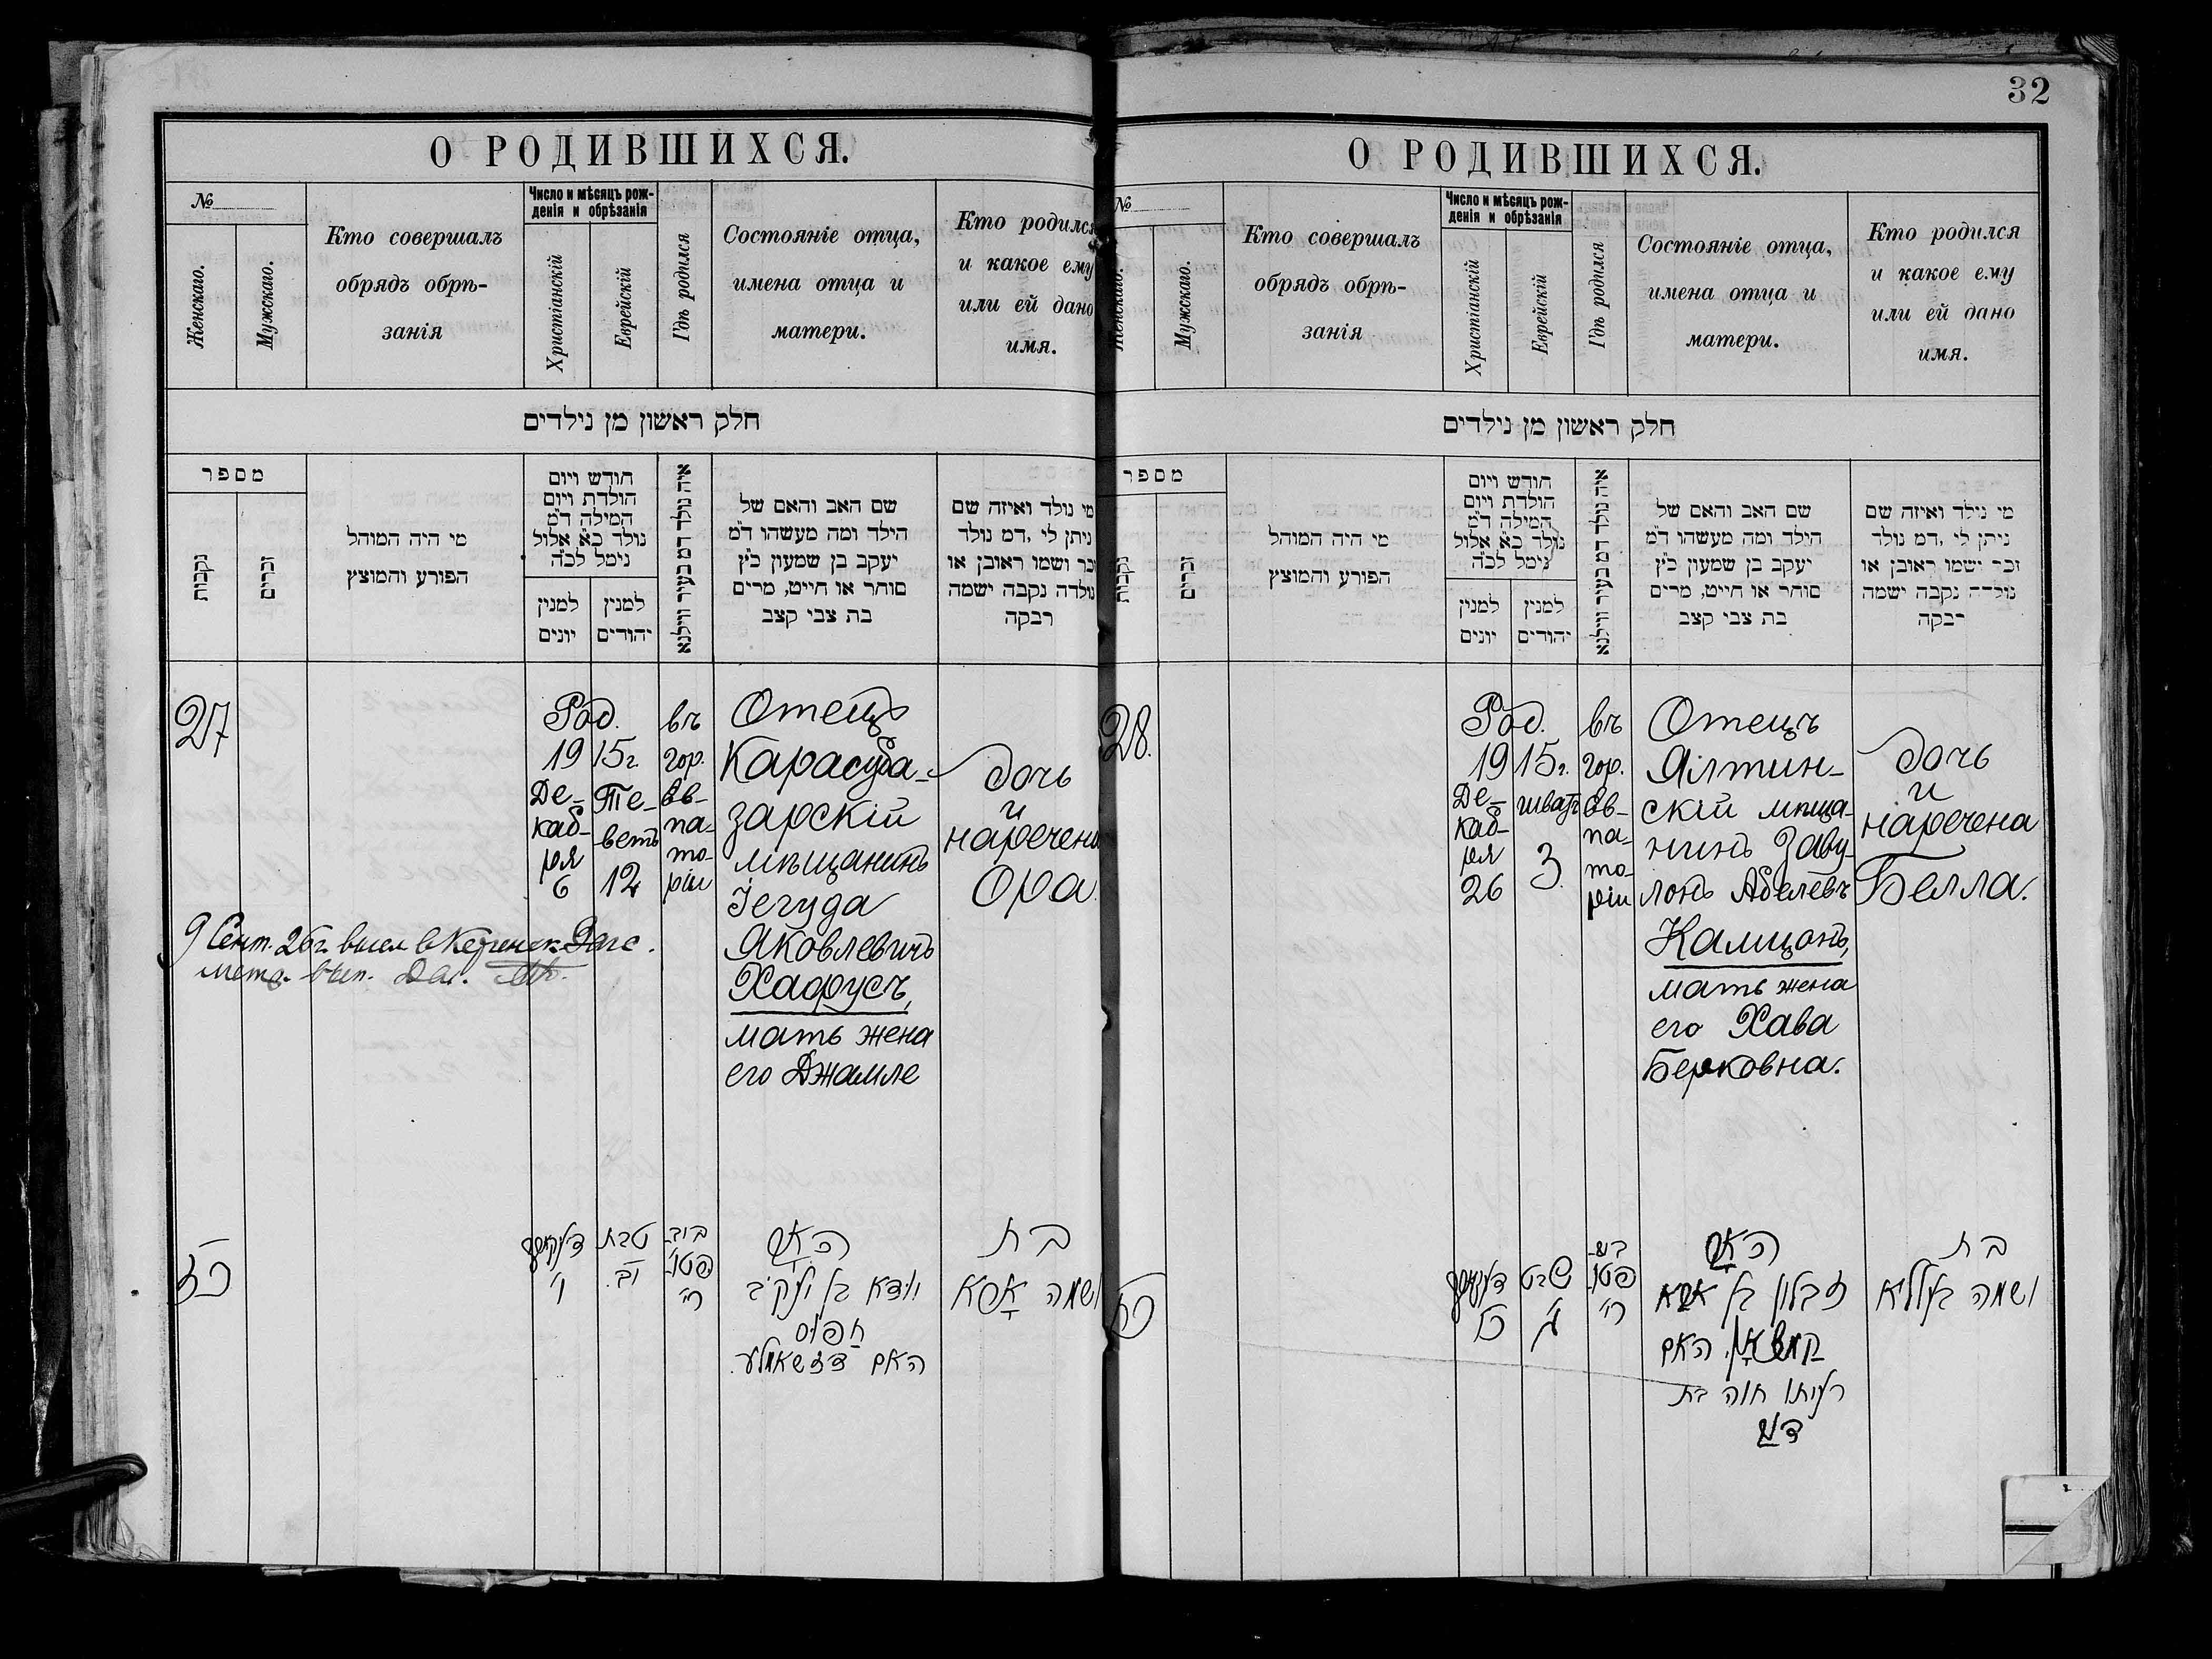 О РОДИВШИХСЯ.
№
Женскаго.
Мужскаго.
Кто совершалъ
обрядъ обрѣ-
занія
Число и мѣсяцъ рож-
денія и обрѣзанія
Христіанскій
Еврейскій
Гдѣ родился
Состояніе отца,
имена отца и
матери.
Кто родился
и какое ему
или ей дано
имя.
חלק ראשון מן נילדים
מספר
נקבות
זכרים
מי היה המוהל
הפורע והמוצץ
חודש ויום
הולדת ויום
המילה ד"מ
נולד כ"א אלול
נימל לכ"ה
למנין
יונים
למנין
יהודים
איה נולד דמ בעיר ווילנא
שם האב והאם של
הילד ומה מעשהו ד"מ
יעקב בן שמעון כ"ץ
סוחר או חייט, מרים
בת צבי קצב
מי נולד ואיזה שם
ניתן לי, דמ נולד
זכר ושמו ראובן או
נולדה נקבה ישמה
רבקה
27
Род.
19 15г.
Де-
каб-
ря
6
Те-
ветъ
12
въ
гор.
Ев-
па-
то-
ріи
Отецъ
Карасуба-
зарскій
мѣщанинъ
Іегуда
Яковлевичъ
Хафусъ,
мать жена
его Джамле
дочь
и
наречена
Ора.
9 Сент. 26г.
כז
טבת
יב
ו'
האב
יודא בן יעקיב
חפוס
האם דזשאמלע.
בת
ושמה אָרא
32
О РОДИВШИХСЯ.
№
Женскаго.
Мужскаго.
Кто совершалъ
обрядъ обрѣ-
занія
Число и мѣсяцъ рож-
денія и обрѣзанія
Христіанскій
Еврейскій
Гдѣ родился
Состояніе отца,
имена отца и
матери.
Кто родился
и какое ему
или ей дано
имя.
חלק ראשון מן נילדים
מספר
נקבות
זכרים
מי היה המוהל
הפורע והמוצץ
חודש ויום
הולדת ויום
המילה ד"מ
נולד כ"א אלול
נימל לכ"ה
למנין
יונים
למנין
יהודים
איה נולד דמ בעיר ווילנא
שם האב והאם של
הילד ומה מעשהו ד"מ
יעקב בן שמעון כ"ץ
סוחר או חייט, מרים
בת צבי קצב
מי נילד ואיזה שם
ניתן לי, דמ נולד
זכר ישמו ראובן או
נולדה נקבה ישמה
רבקה
28.
Род.
19 15г.
Де-
каб-
ря
26
шватъ
3.
въ
гор.
Ев-
па-
то-
ріи
Отецъ
Ялтин-
скій мѣща-
нинъ Заву-
лонъ Абелевъ
Камцонъ,
мать жена
его Хава
Берковна.
дочь
и
наречена
Белла.
כח
שבט
ג'
כו
האב
זבלון בן
האם
רעיתו חוה בת
בת
ושמה בעלליא